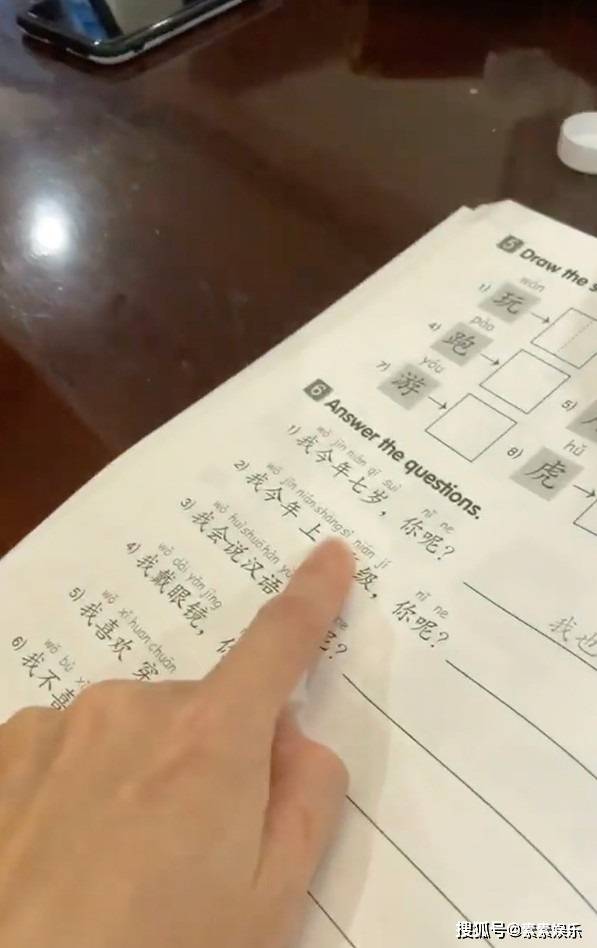 5 Draw the s
wán
1) 玩
pǎo
4) 跑
5)
yóu
7) 游
hǔ
8) 虎
6 Answer the questions.
wǒ jīn nián qī suì nǐ ne
1) 我今年七岁，你呢？
wǒ jīn nián shàng sì nián jí nǐ ne
2) 我今年上 级，你呢？
我也
wǒ huì shuō hàn yǔ ne
3) 我会说汉语 呢？
wǒ dài yǎn jìng
4) 我戴眼镜，你
wǒ xǐ huan chuān
5) 我喜欢 穿
wǒ bù xǐ
6) 我不喜
搜狐号@素素娱乐